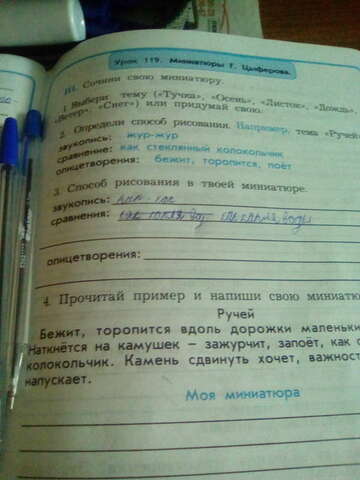 Урок 119. Миниатюры Г. Цыферова.
III. Сочини свою миниатюру.
1. Выбери тему («Тучка», «Осень», «Листок», «Дождь»,
«Ветер», «Снег») или придумай свою.
2. Определи способ рисования. Например, тема «Ручей»
звукопись: жур-жур
сравнение: как стеклянный колокольчик
олицетворения: бежит, торопится, поёт
3. Способ рисования в твоей миниатюре.
звукопись: кап-кап
сравнения: как воды
олицетворения:
4. Прочитай пример и напиши свою миниатю
Ручей
Бежит, торопится вдоль дорожки маленьки
Наткнётся на камушек – зажурчит, запоёт, как с
колокольчик. Камень сдвинуть хочет, важност
напускает.
Моя миниатюра